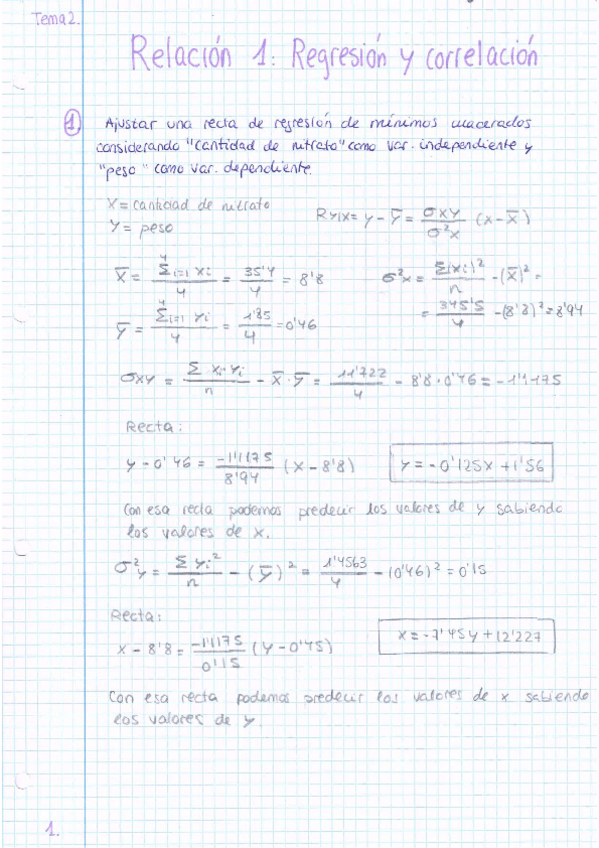 Tema 2.
Relación 1: Regresión y correlación
1. Ajustar una recta de regresión de mínimos cuadrados
considerando "cantidad de nitrato" como var. independiente y
"peso" como var. dependiente.
X = cantidad de nitrato
Y = peso
Ry/x = y - ȳ = σxy / σ²x (x - x̄)
x̄ = Σ⁴i=1 xi / 4 = 35'4 / 4 = 8'8
σ²x = Σ(xi)² / n - (x̄)² =
= 345'5 / 4 - (8'8)² = 8'94
ȳ = Σ⁴i=1 yi / 4 = 1'85 / 4 = 0'46
σxy = Σ xi·yi / n - x̄·ȳ = 11'722 / 4 - 8'8·0'46 = -1'1175
Recta:
y - 0'46 = -1'1175 / 8'94 (x - 8'8)
y = -0'125x + 1'56
Con esa recta podemos predecir los valores de y sabiendo
los valores de x.
σ²y = Σ yi² / n - (ȳ)² = 1'4563 / 4 - (0'46)² = 0'15
Recta:
x - 8'8 = -1'1175 / 0'15 (y - 0'45)
x = -7'45y + 12'227
Con esa recta podemos predecir los valores de x sabiendo
los valores de y.
1.